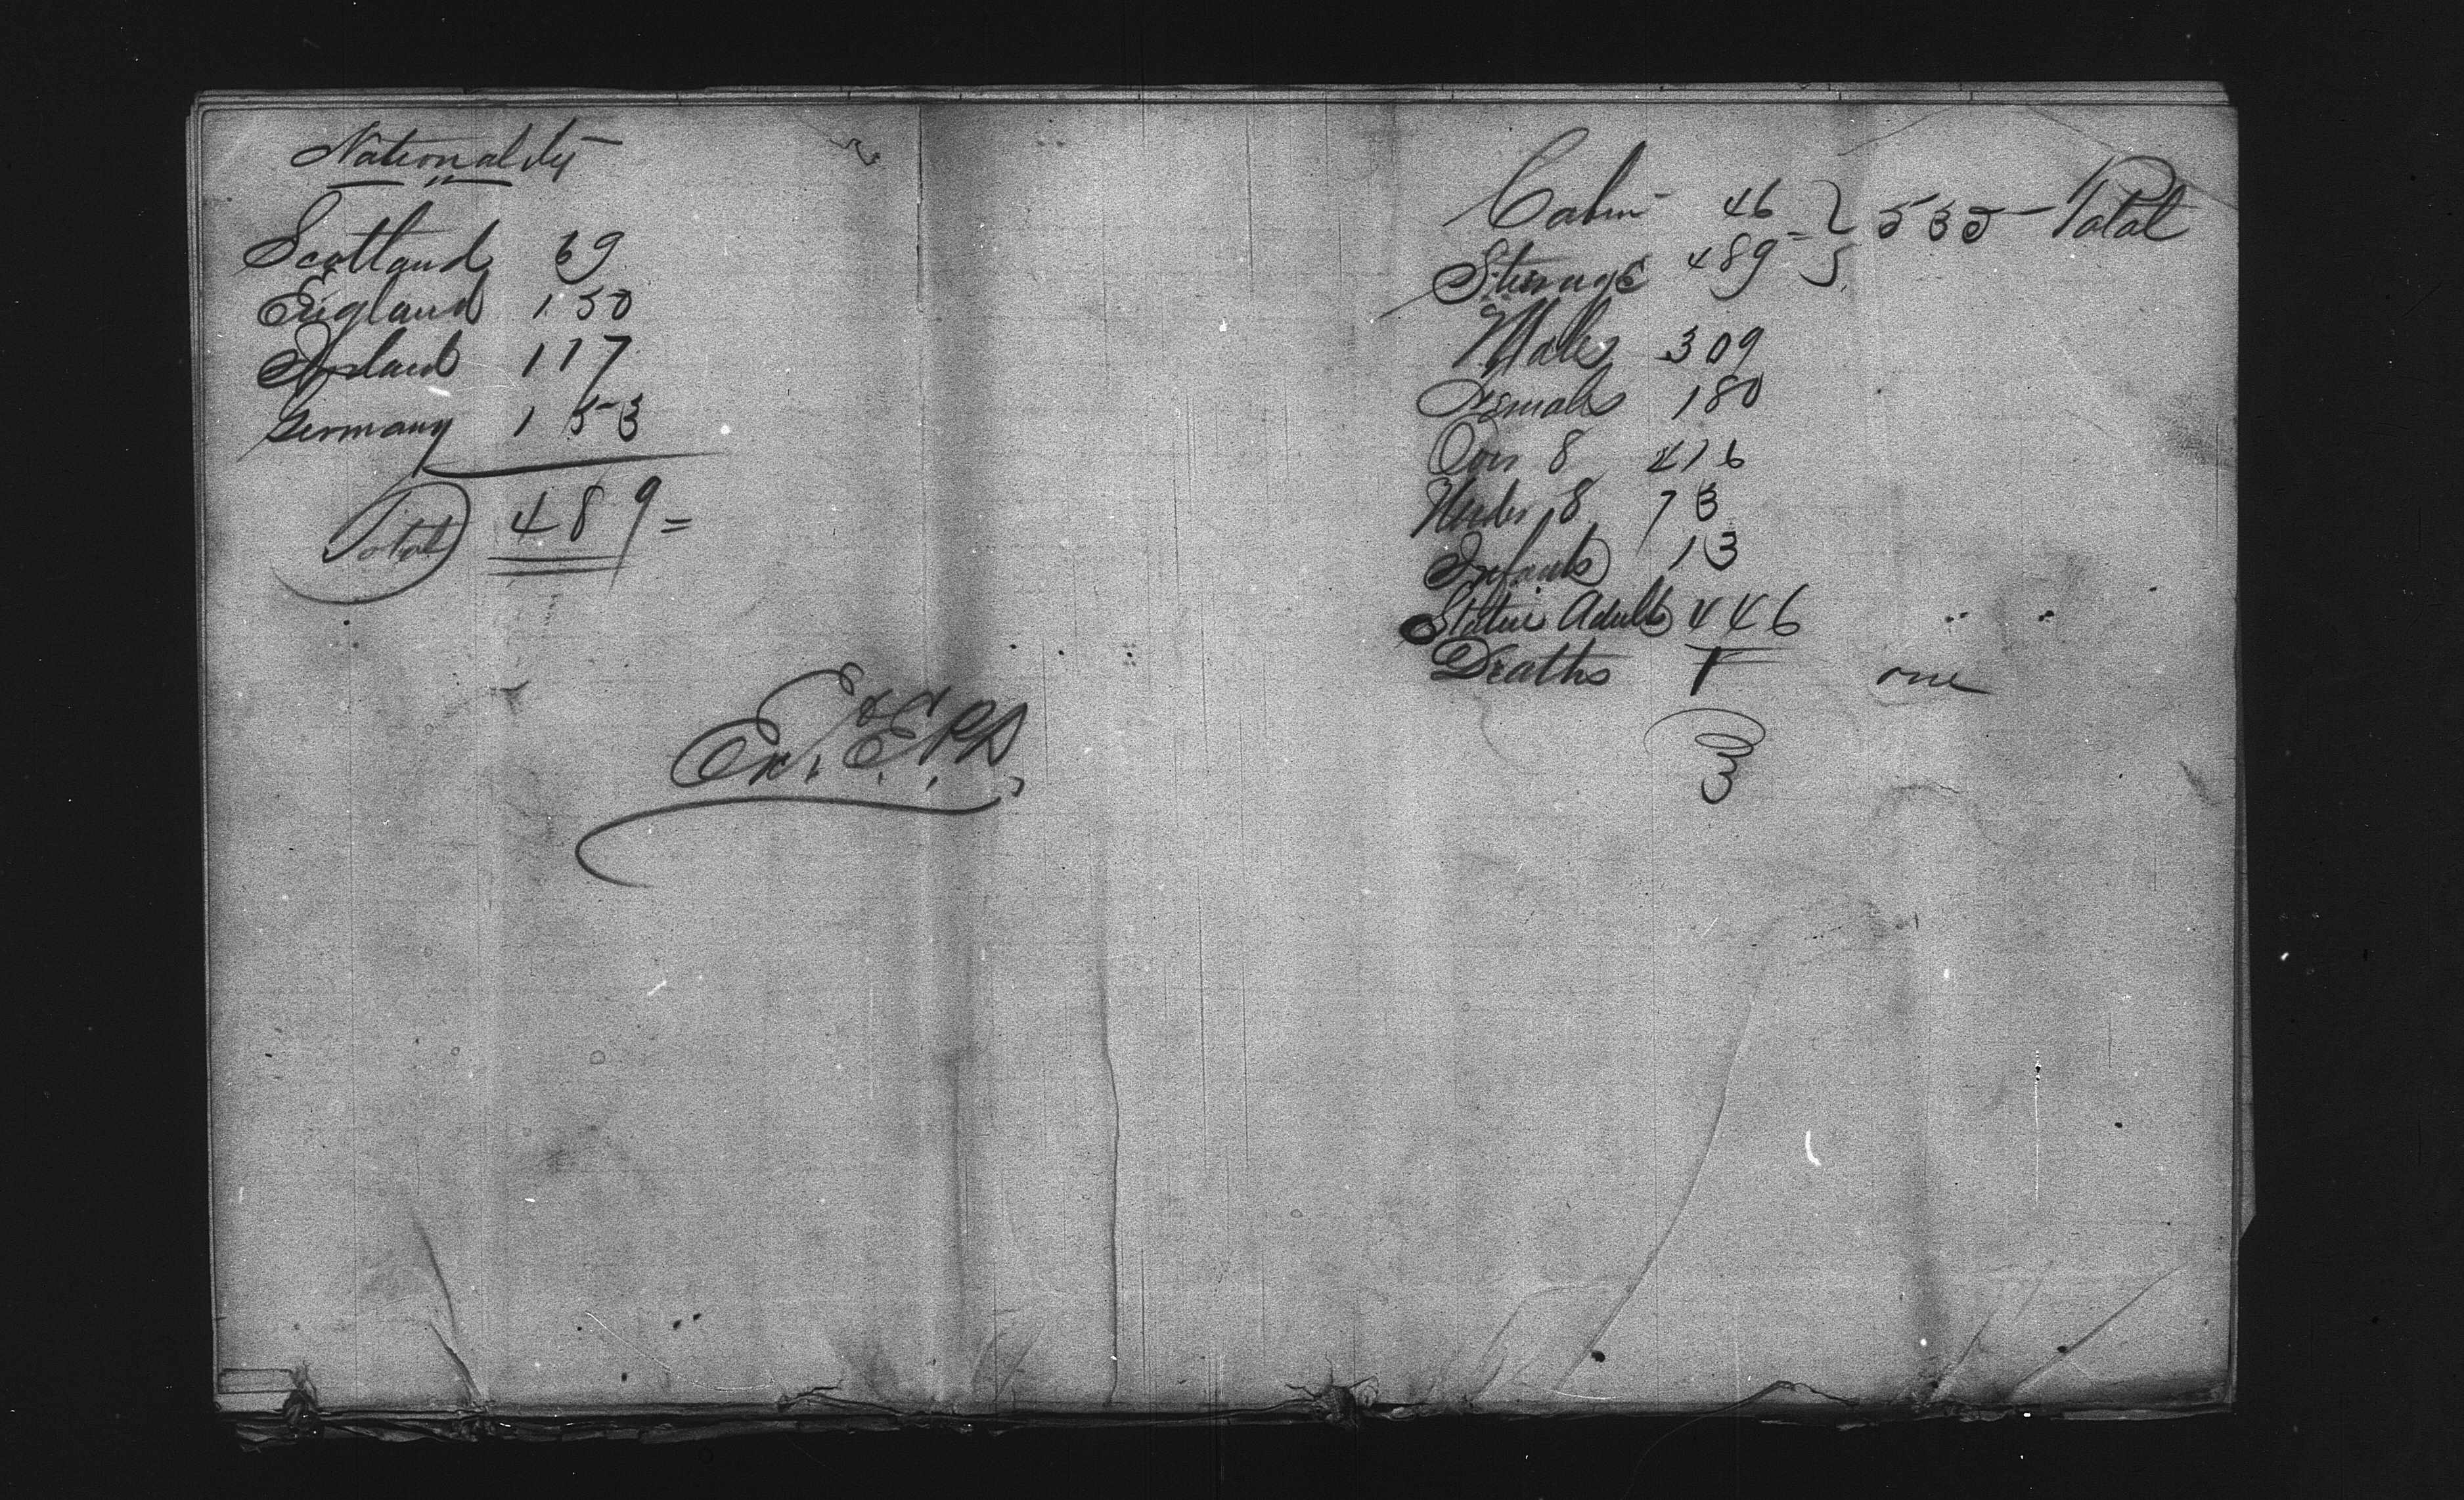 Nationality
Scotland 69
England 150
Ireland 117
Germany 153
Total 489 =
Cabin 46
Steerage 489 } 535 - Total
Male 309
Female 180
Over 8 416
Under 8 73
Infants 13
Statue Adults 446
Deaths 1 one